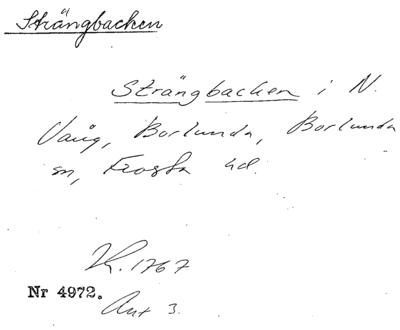 Strängbacken
Strängbacken i N.
Vång, Borlunda, Borlunda
sn, Frosta hd.
K. 1767
Nr 4972.
Akt 3.